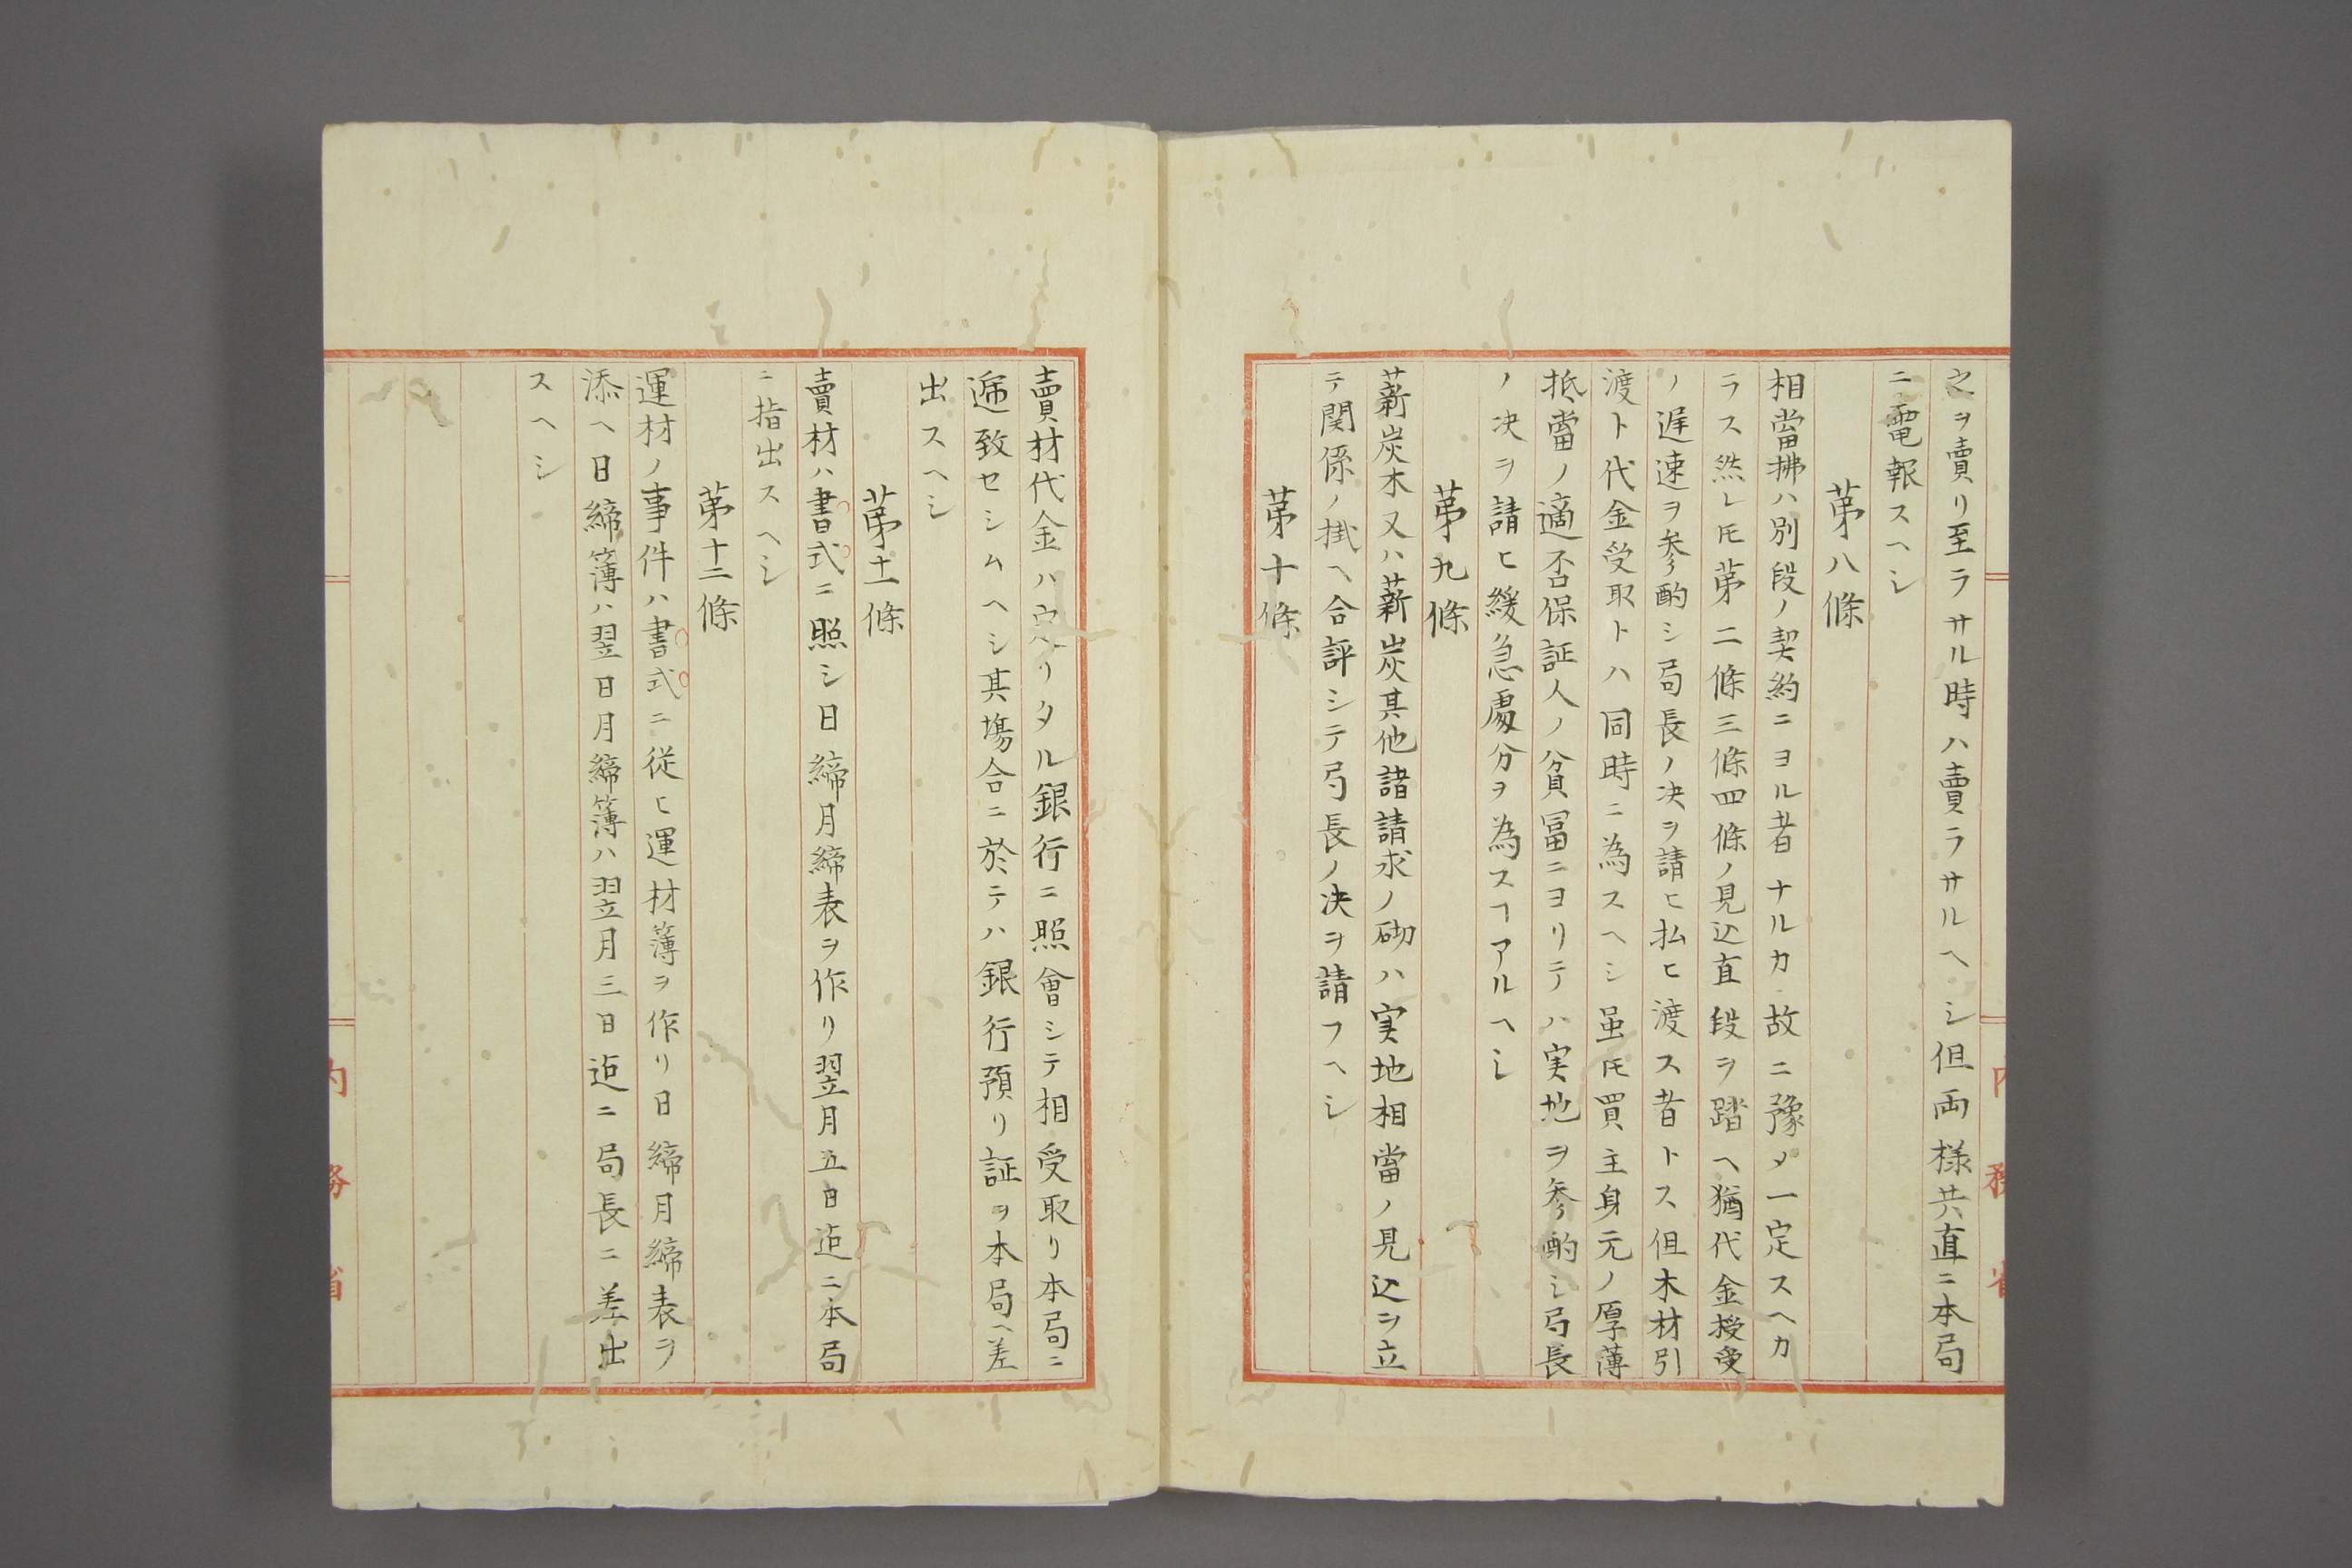 之ヲ賣リ至ラサル時ハ賣ラサルヘシ但両様共直ニ本局
ニ電報スヘシ
第八條
相當拂ハ別段ノ契約ニヨル者ナルカ故ニ豫メ一定スヘカ
ラス然レ𪜈第二條三條四條ノ見込直段ヲ踏ヘ猶代金授受
ノ遅速ヲ参酌シ局長ノ决ヲ請ヒ払ヒ渡ス者トス但木材引
渡ト代金受取トハ同時ニ為スヘシ虽𪜈買主身元ノ厚薄
抵當ノ適否保証人ノ貧冨ニヨリテハ実地ヲ参酌シ局長
ノ决ヲ請ヒ緩急處分ヲ為スヿアルヘシ
第九條
薪炭木又ハ薪炭其他諸請求ノ砌ハ実地相當ノ見込ヲ立
テ関係ノ掛ヘ合評シテ局長ノ决ヲ請フヘシ
第十條
賣材代金ハ定リタル銀行ニ照會シテ相受取リ本局ニ
逓致セシムヘシ其塲合ニ於テハ銀行預リ証ヲ本局ヘ差
出スヘシ
第十一條
賣材ハ書式ニ照シ日締月締表ヲ作リ翌月五日迠ニ本局
ニ指出スヘシ
第十二條
運材ノ事件ハ書式ニ従ヒ運材薄ヲ作リ日締月締表ヲ
添ヘ日締簿ハ翌日月締簿ハ翌月三日迠ニ局長ニ差出
スヘシ
内務省